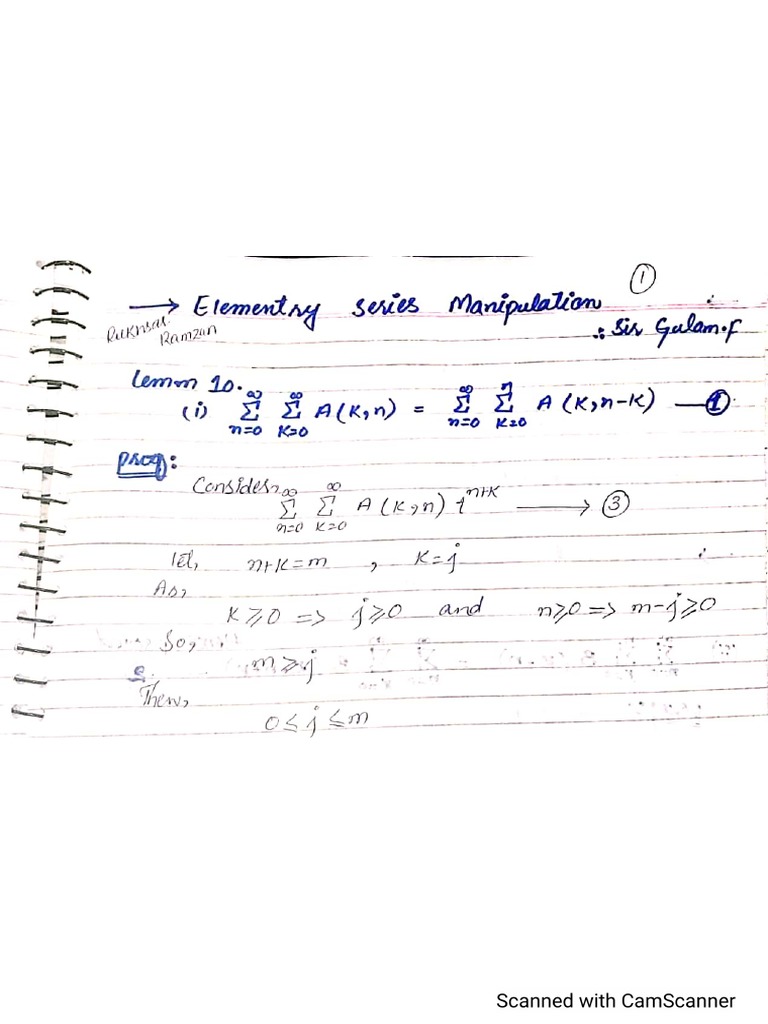 ①
→ Elementry series Manipulation
Rukhsar Ramzan
∴ Sir Gulam.f
Lemm 10.
(i) ∞Σn=0 ∞Σk=0 A(k,n) = ∞Σn=0 nΣk=0 A(k,n-k) —①
Proof:
Consider, ∞Σn=0 ∞Σk=0 A(k,n) t^n+k ⟶ ③
let, n+k=m , k=j
As,
k⩾0 => j⩾0 and n⩾0 => m-j⩾0
So,
m⩾j
Then,
0≤j≤m
Scanned with CamScanner